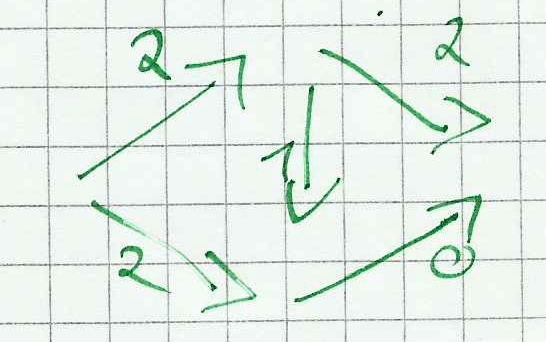 2 2
1
2 0